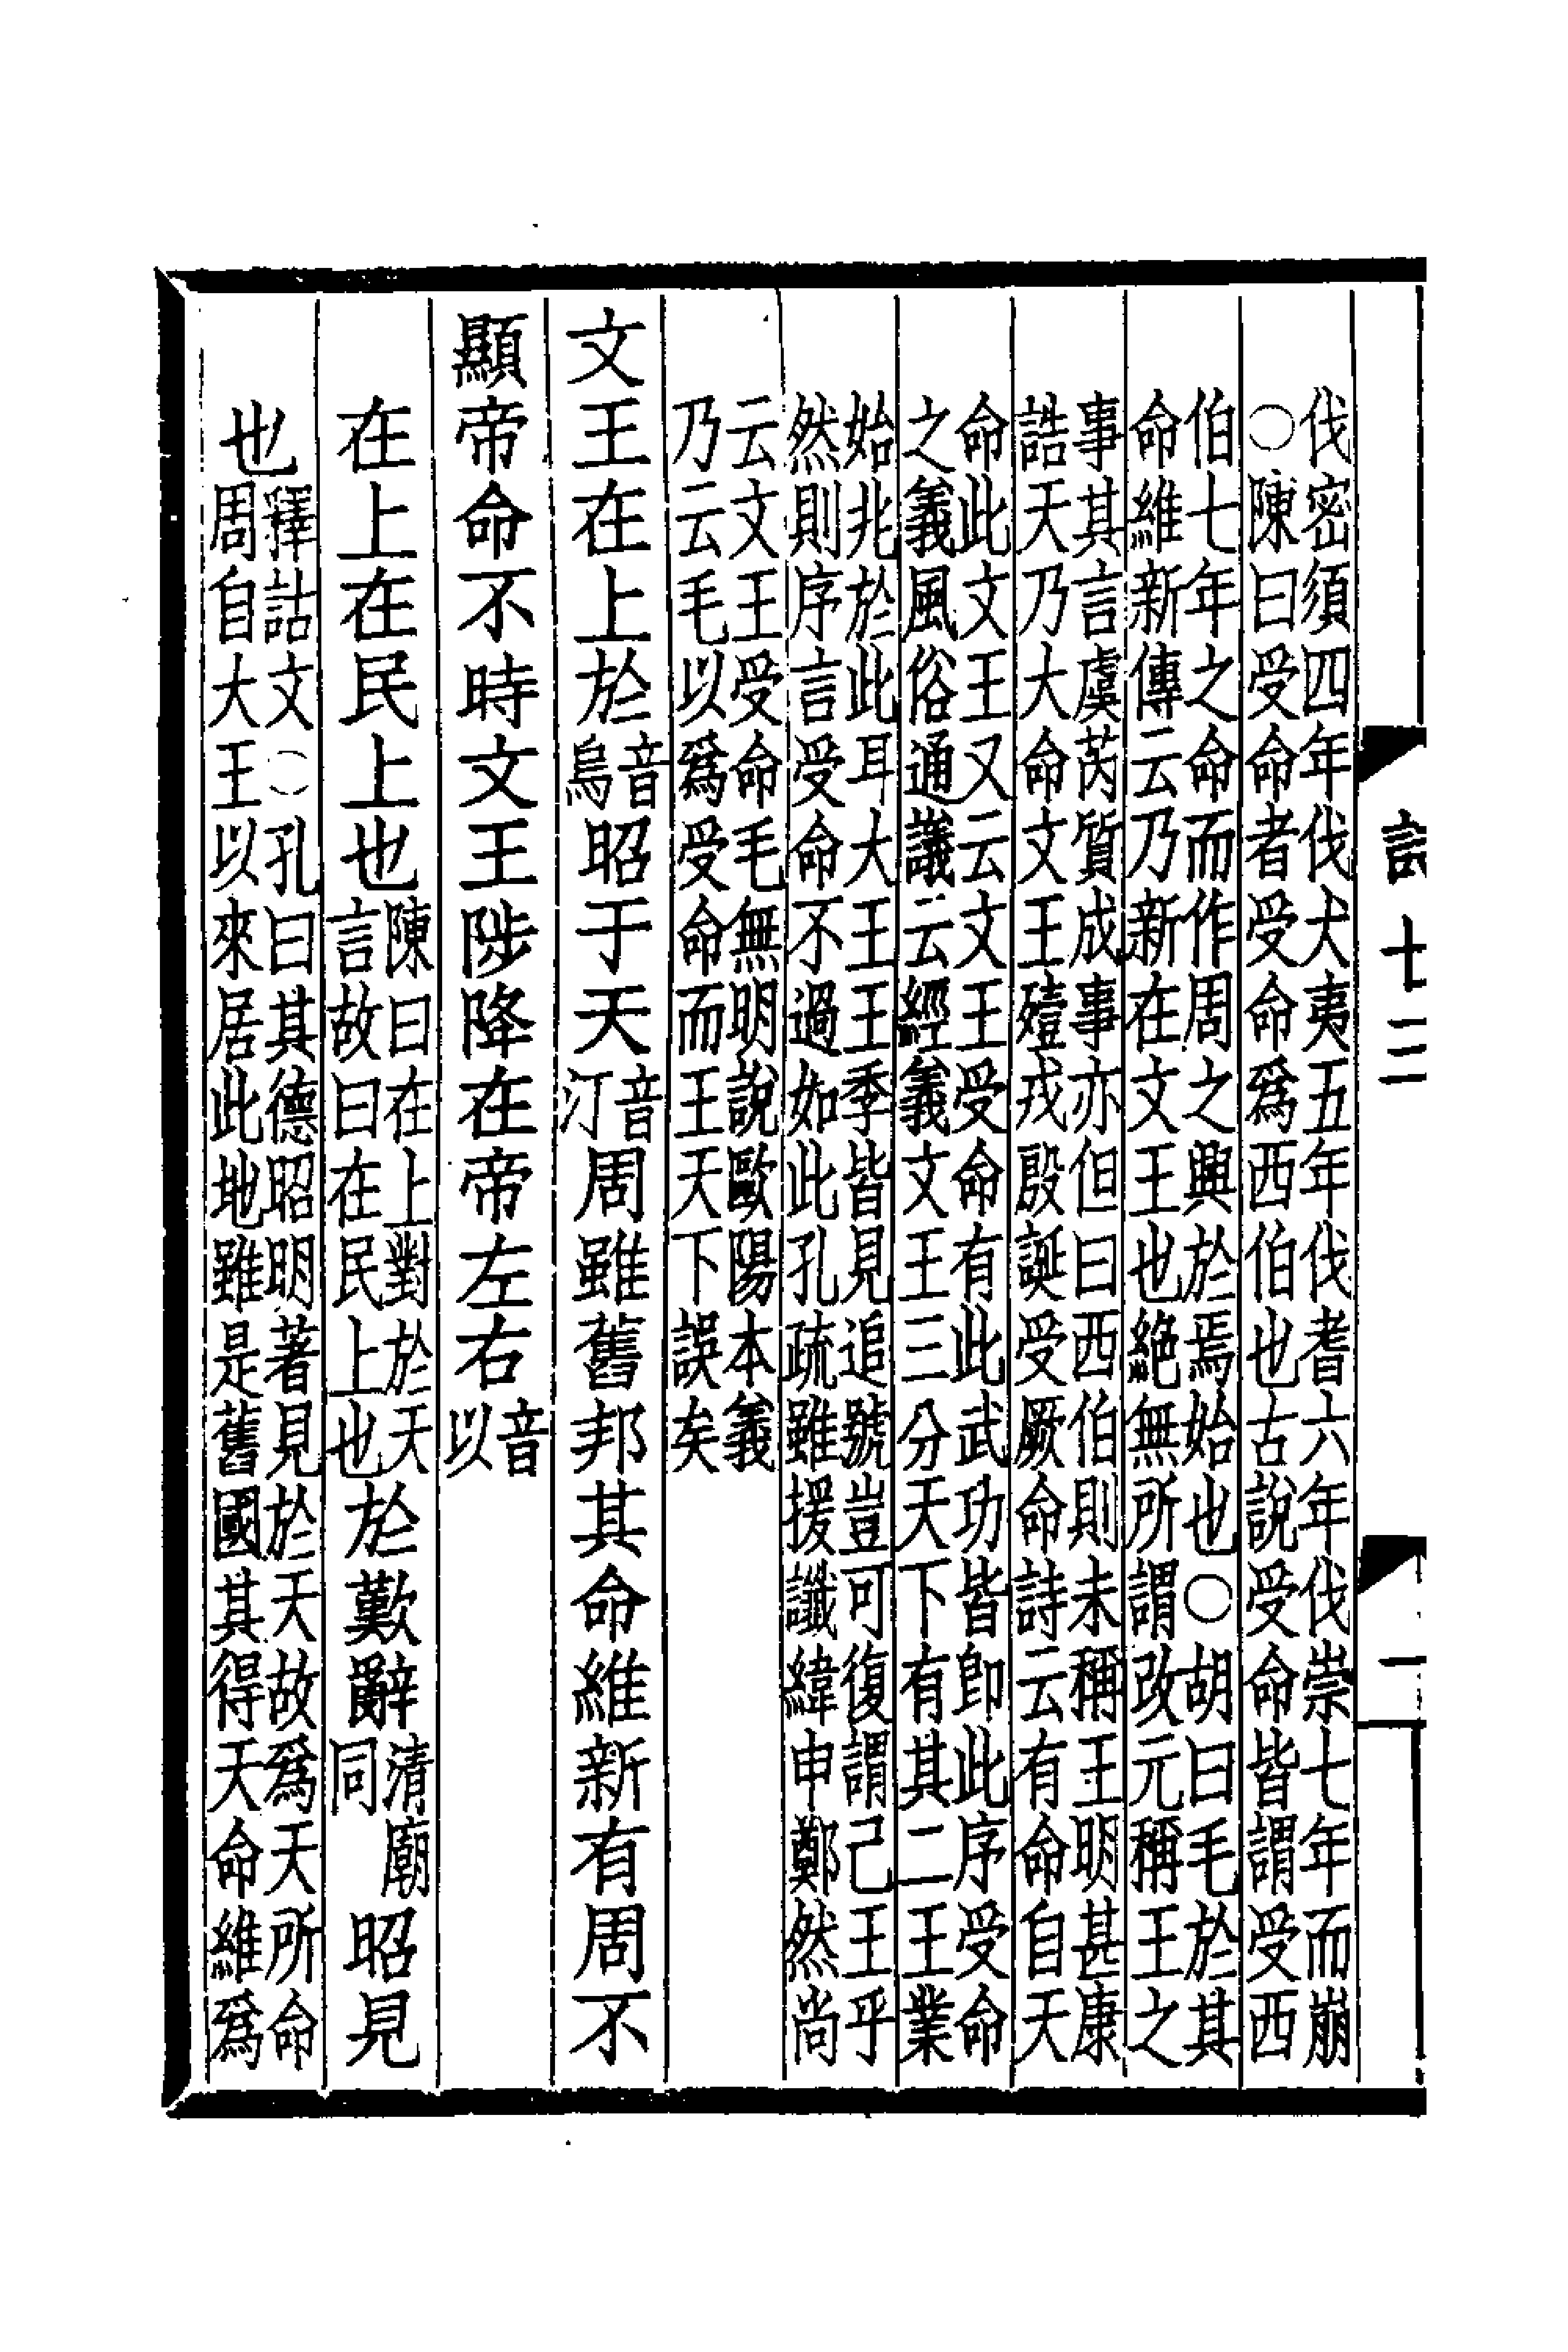 伐密須四年伐犬夷五年伐耆六年伐崇七年而崩
○陳曰受命者受命爲西伯也古說受命皆謂受西
伯七年之命而作周之興於焉始也○胡曰毛於其
命維新傳云乃新在文王也絶無所謂改元稱王之
事其言虞芮質成事亦但曰西伯則未稱王明甚康
誥天乃大命文王殪戎殷誕受厥命詩云有命自天
命此文王又云文王受命有此武功皆卽此序受命
之義風俗通議云經義文王三分天下有其二王業
始兆於此耳大王王季皆見追號豈可復謂己王乎
然則序言受命不過如此孔疏雖援讖緯申鄭然尚
云文王受命毛無明說歐陽本義
乃云毛以爲受命而王天下誤矣
文王在上於音烏昭于天音汀周雖舊邦其命維新有周不
顯帝命不時文王陟降在帝左右音以
在上在民上也陳曰在上對於天言故曰在民上也於歎辭清廟同昭見
也釋詁文○孔曰其德昭明著見於天故爲天所命周自大王以來居此地雖是舊國其得天命維爲
詩
一